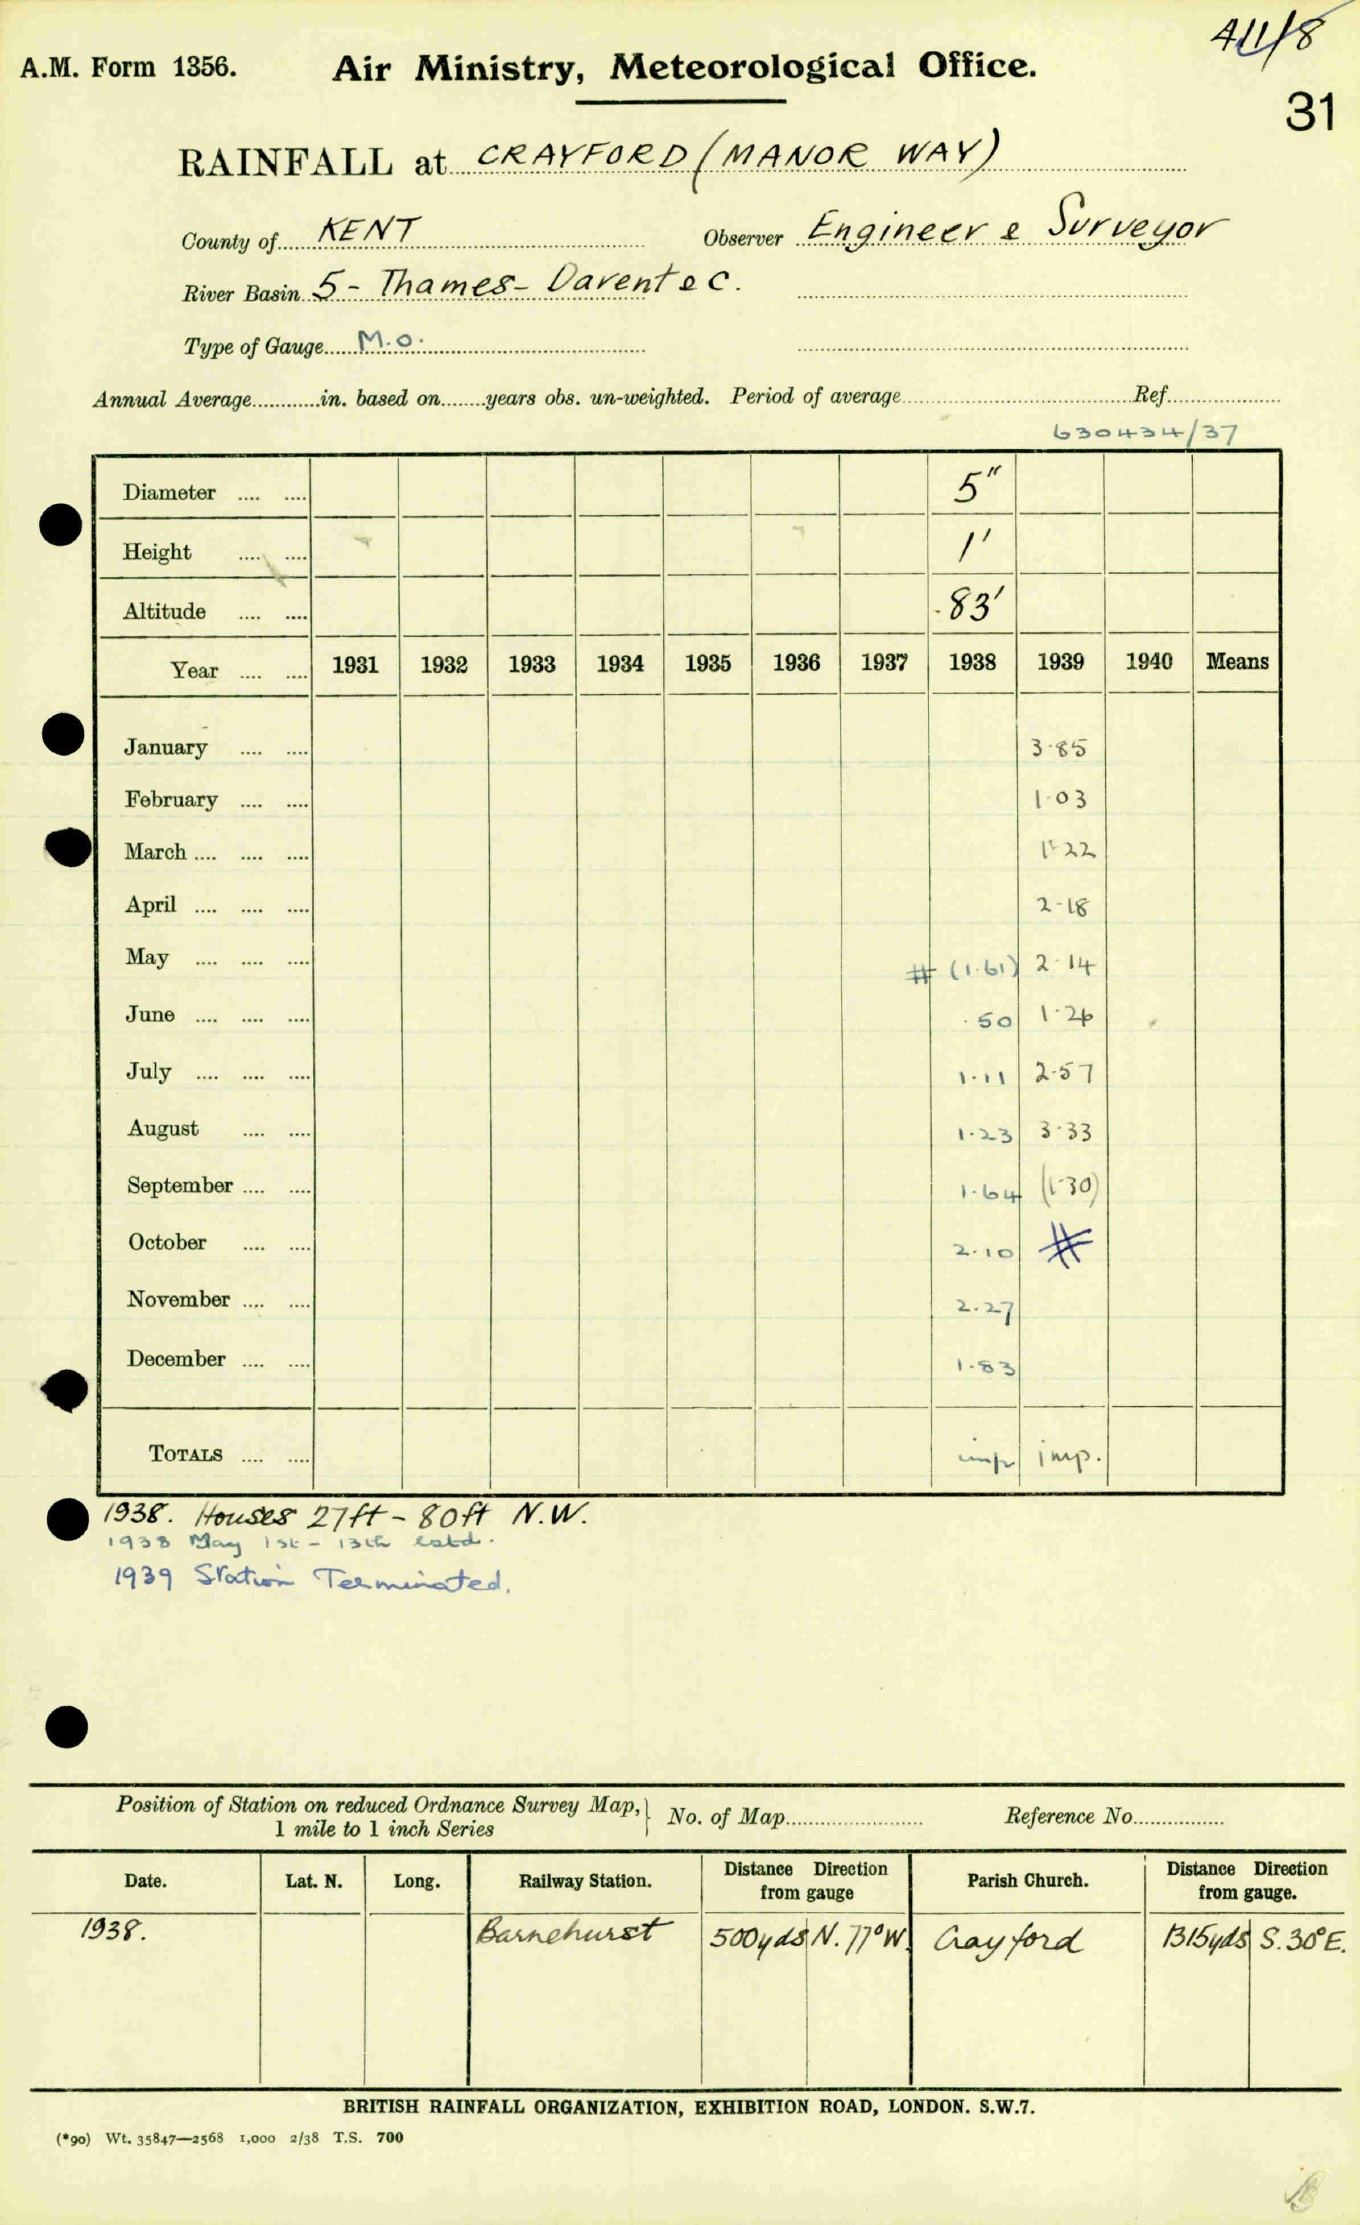 411/8
A.M. Form 1356. Air Ministry, Meteorological Office.
31
RAINFALL at CRAYFORD (MANOR WAY)
County of KENT Observer Engineer & Surveyor
River Basin 5 - Thames - Darent & C.
Type of Gauge M.O.
Annual Average............in. based on........years obs. un-weighted. Period of average........................Ref....................
630434/37
Diameter .... .... 5"
Height .... .... 1'
Altitude .... .... 83'
Year .... .... 1931 1932 1933 1934 1935 1936 1937 1938 1939 1940 Means
January .... .... 3·85
February .... .... 1·03
March .... .... .... 1·22
April .... .... .... 2·18
May .... .... .... # (1·61) 2·14
June .... .... .... ·50 1·26
July .... .... .... 1·11 2·57
August .... .... 1·23 3·33
September .... .... 1·64 (1·30)
October .... .... 2·10 #
November .... .... 2·27
December .... .... 1·83
TOTALS .... .... imp imp.
1938. Houses 27ft - 80ft N.W.
1938 May 1st - 13th estd.
1939 Station Terminated.
Position of Station on reduced Ordnance Survey Map, } No. of Map........................ Reference No................
1 mile to 1 inch Series
Date. Lat. N. Long. Railway Station. Distance Direction from gauge Parish Church. Distance Direction from gauge.
1938. Barnehurst 500yds N. 77° W. Crayford 1315yds S. 30° E.
BRITISH RAINFALL ORGANIZATION, EXHIBITION ROAD, LONDON. S.W.7.
(*90) Wt. 35847—2568 1,000 2/38 T.S. 700